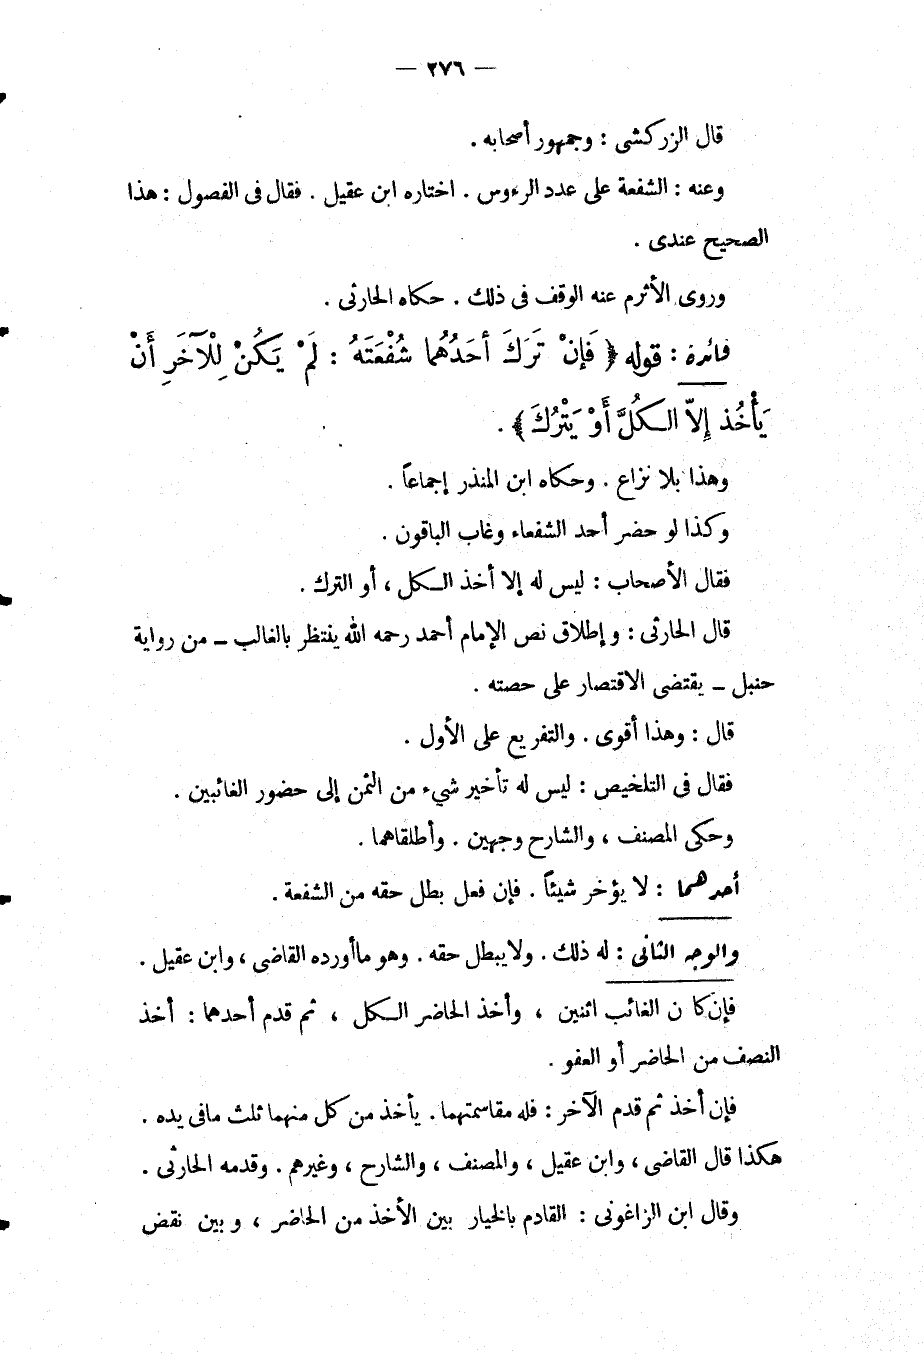 — ٢٧٦ —
قال الزركشى : وجمهور أصحابه .
وعنه : الشفعة على عدد الرءوس . اختاره ابن عقيل . فقال فى الفصول : هذا
الصحيح عندى .
وروى الأثرم عنه الوقف فى ذلك . حكاه الحارثى .
فائدة : قوله ﴿ فَإِنْ تَرَكَ أحَدُهُما شُفْعَتَهُ : لَمْ يَكُنْ لِلْآخَرِ أَنْ
يَأْخُذ إِلاّ الـكُلَّ أَوْ يَتْرُكَ ﴾ .
وهذا بلا نزاع . وحكاه ابن المنذر إجماعاً .
وكذا لو حضر أحد الشفعاء وغاب الباقون .
فقال الأصحاب : ليس له إلا أخذ الـكل ، أو الترك .
قال الحارثى : وإطلاق نص الإمام أحمد رحمه الله ينتظر بالغالب ــ من رواية
حنبل ــ يقتضى الاقتصار على حصته .
قال : وهذا أقوى . والتفريع على الأول .
فقال فى التلخيص : ليس له تأخير شيء من الثمن إلى حضور الغائبين .
وحكى المصنف ، والشارح وجهين . وأطلقاهما .
أحدهما : لا يؤخر شيئاً . فإن فعل بطل حقه من الشفعة .
والوجه الثانى : له ذلك . ولايبطل حقه . وهو ماأورده القاضى ، وابن عقيل .
فإن كا ن الغائب اثنين ، وأخذ الحاضر الـكل ، ثم قدم أحدهما : أخذ
النصف من الحاضر أو العفو .
فإن أخذ ثم قدم الآخر : فله مقاسمتهما . يأخذ من كل منهما ثلث مافى يده .
هكذا قال القاضى ، وابن عقيل ، والمصنف ، والشارح ، وغيرهم . وقدمه الحارثى .
وقال ابن الزاغونى : القادم بالخيار بين الأخذ من الحاضر ، وبين نقض